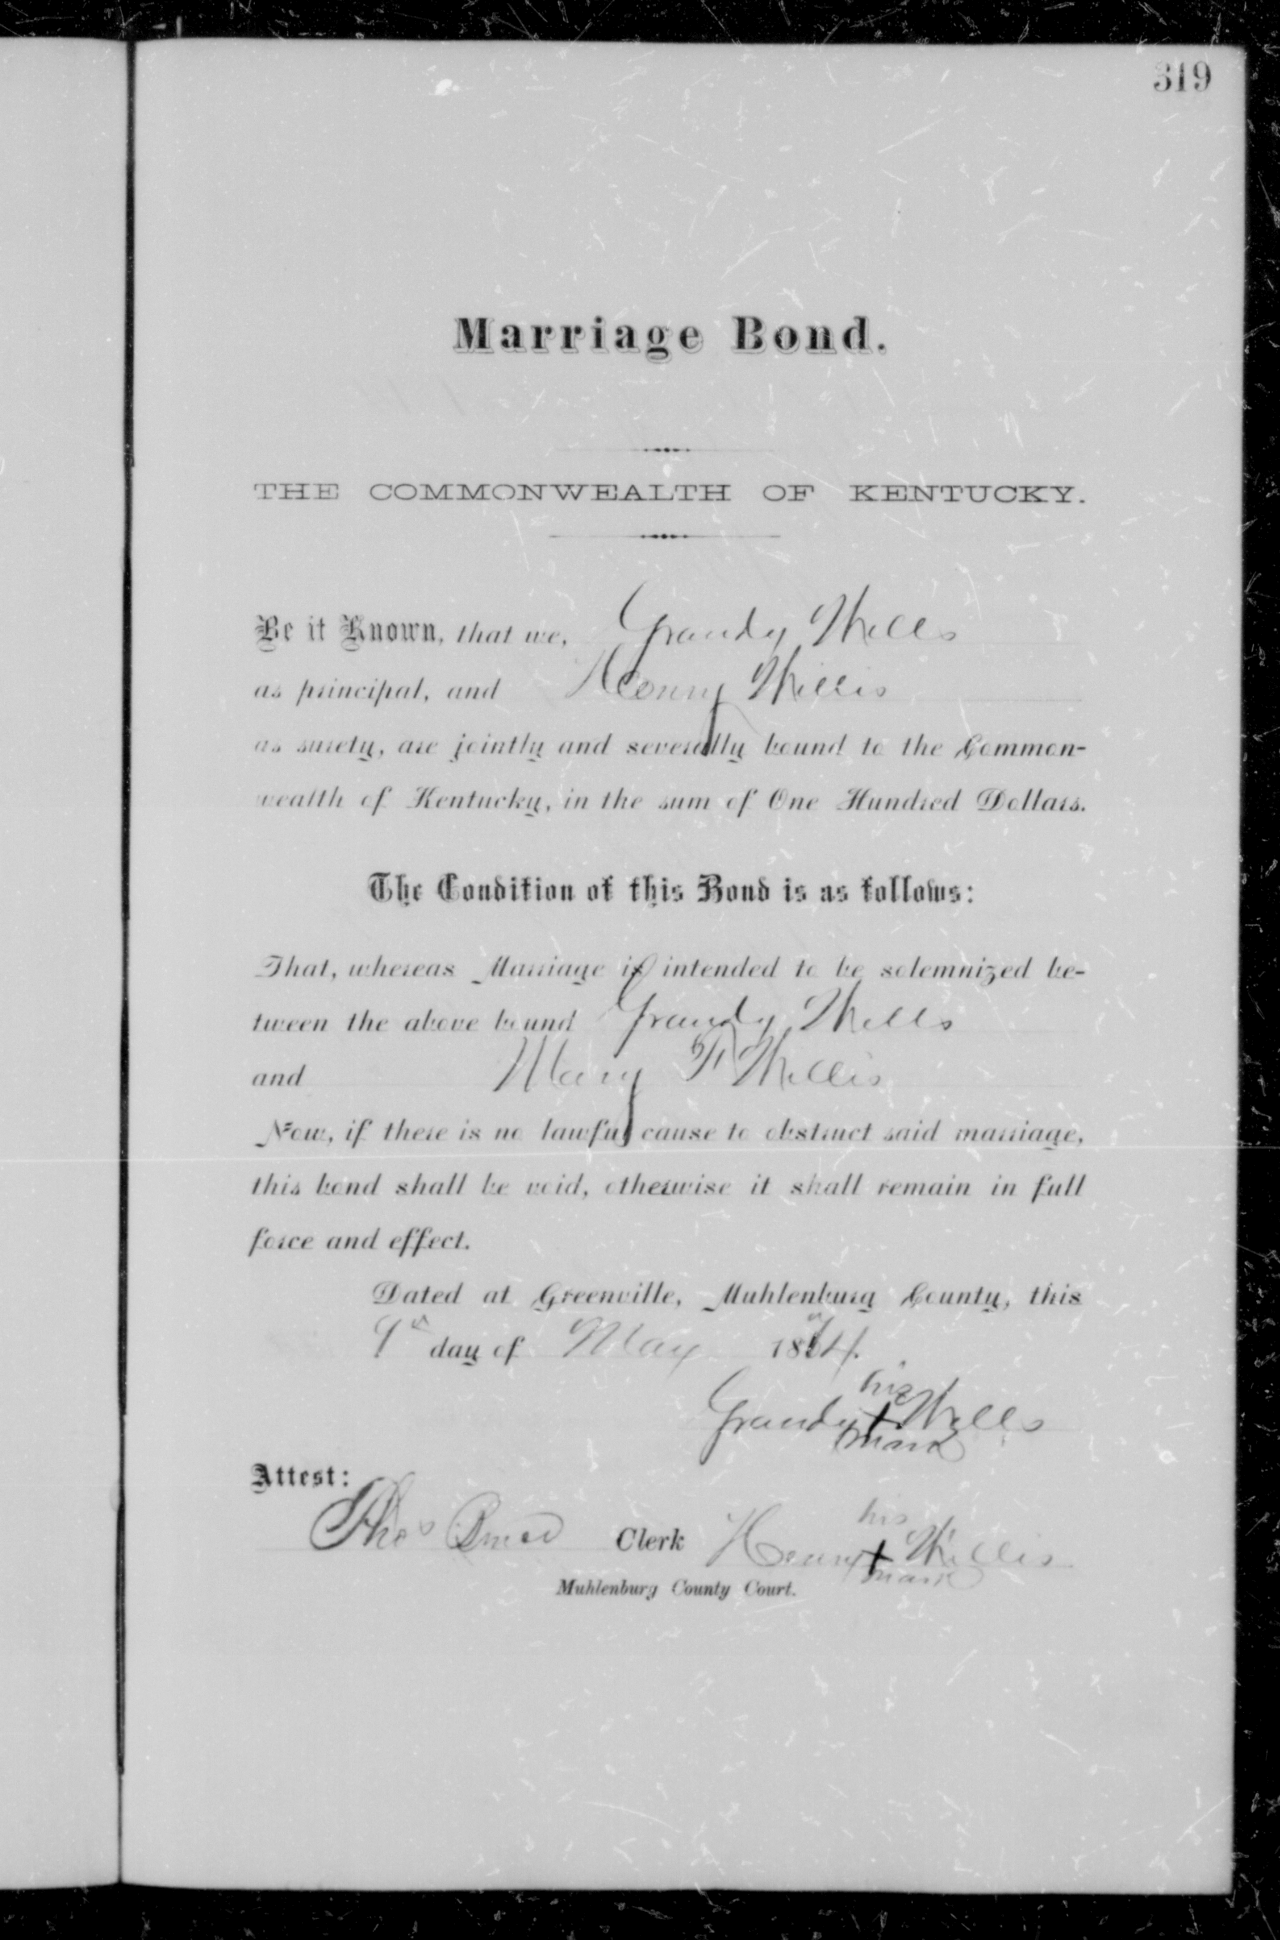 319
Marriage Bond.
THE COMMONWEALTH OF KENTUCKY.
Be it Known, that we, Grandy Wells
as principal, and Henry Willis
as surety, are jointly and severally bound to the Common-
wealth of Kentucky, in the sum of One Hundred Dollars.
The Condition of this Bond is as follows:
That, whereas Marriage is intended to be solemnized be-
tween the above bound Grandy Wells
and Mary F Willis
Now, if there is no lawful cause to obstruct said marriage,
this bond shall be void, otherwise it shall remain in full
force and effect.
Dated at Greenville, Muhlenburg County, this
9th day of May 1874.
his
Grandy + Wells
mark
Attest:
his
Thos Clerk Henry + Willis
mark
Muhlenburg County Court.